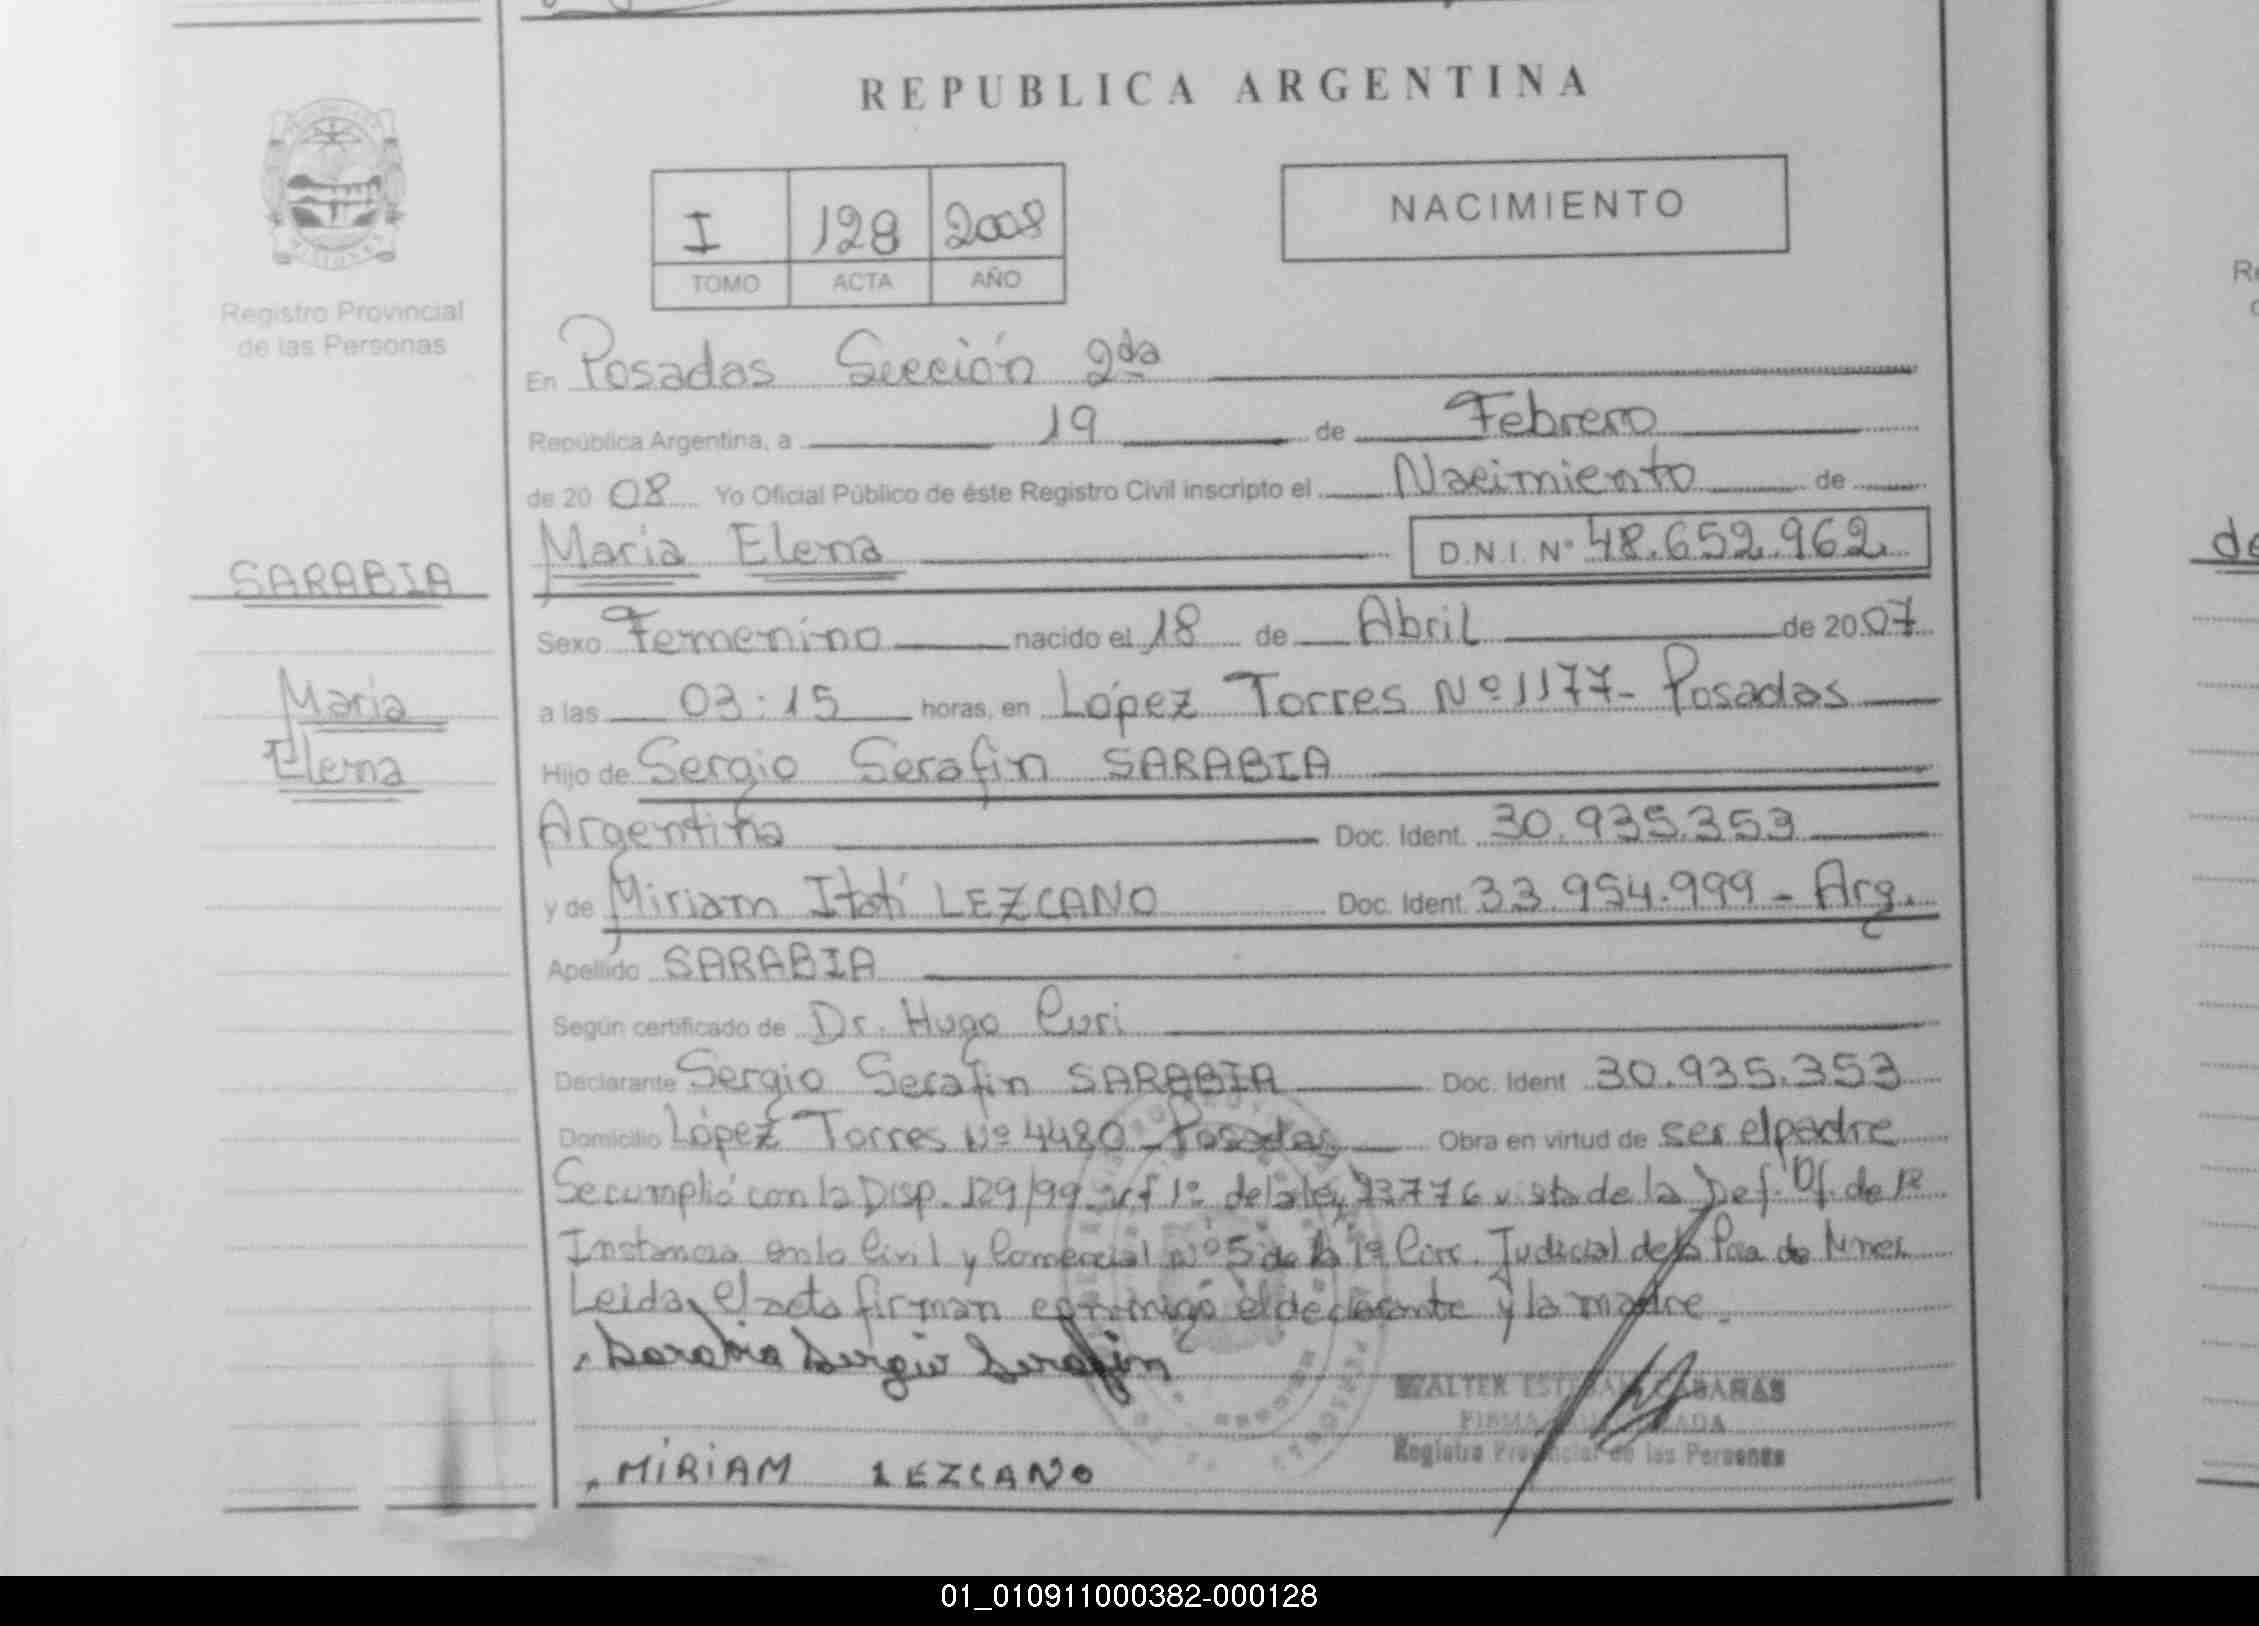 REPUBLICA ARGENTINA
I 128 2008
TOMO ACTA AÑO
NACIMIENTO
Registro Provincial
de las Personas
SARABIA
Maria
Elena
En Posadas Sección 2da
República Argentina, a 19 de Febrero
de 20 08 Yo Oficial Público de éste Registro Civil inscripto el Nacimiento de
Maria Elena D.N.I. Nº 48.652.962
Sexo Femenino nacido el 18 de Abril de 20 07
a las 03:15 horas, en López Torres Nº 1177- Posadas
Hijo de Sergio Serafin SARABIA
Argentina Doc. Ident. 30.935.353
y de Miriam Itatí LEZCANO Doc. Ident. 33.954.999 - Arg.
Apellido SARABIA
Según certificado de Dr. Hugo Curi
Declarante Sergio Serafin SARABIA Doc. Ident 30.935.353
Domicilio López Torres Nº 4480 - Posadas Obra en virtud de ser el padre
Se cumplió con la Disp. 129/99 art 1º de la ley 23776 vista de la Def. Of. de 1ª
Instancia en lo Civil y Comercial Nº 5 de la 1ª Circ. Judicial de la Pcia de Mnes
Leida el acta firman conmigo el declarante y la madre.
Sarabia Sergio Serafin
WALTER ESTEBAN CABAÑAS
FIRMA AUTORIZADA
Registro Provincial de las Personas
MIRIAM LEZCANO
de
01_010911000382-000128